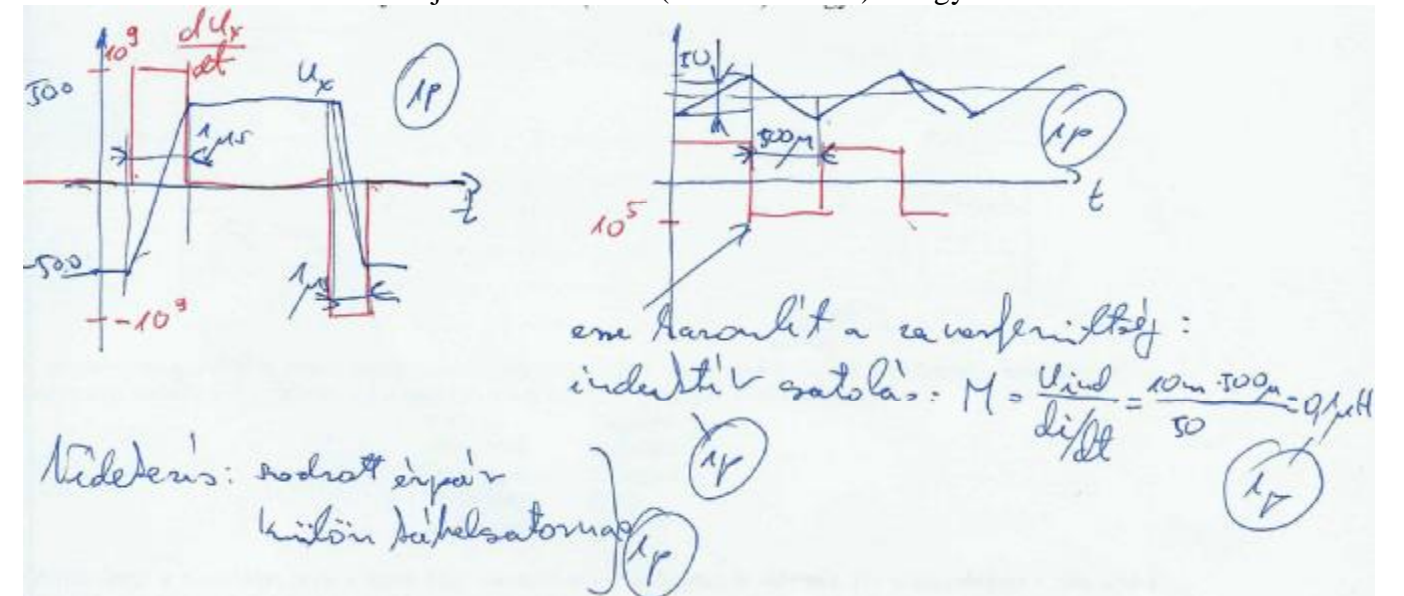 10⁹ du_x/dt
500
u_x
1p
1 μs
t
-500
-10⁹
1 μs
50
1p
500μ
t
10⁵
erre hasonlít a zavarfeszültség:
induktív csatolás: M = U_ind / di/dt = 10m·500μ / 50 = 0,1μH
1p
1p
Védekezés: sodrott érpár
külön kábelcsatorna
1p